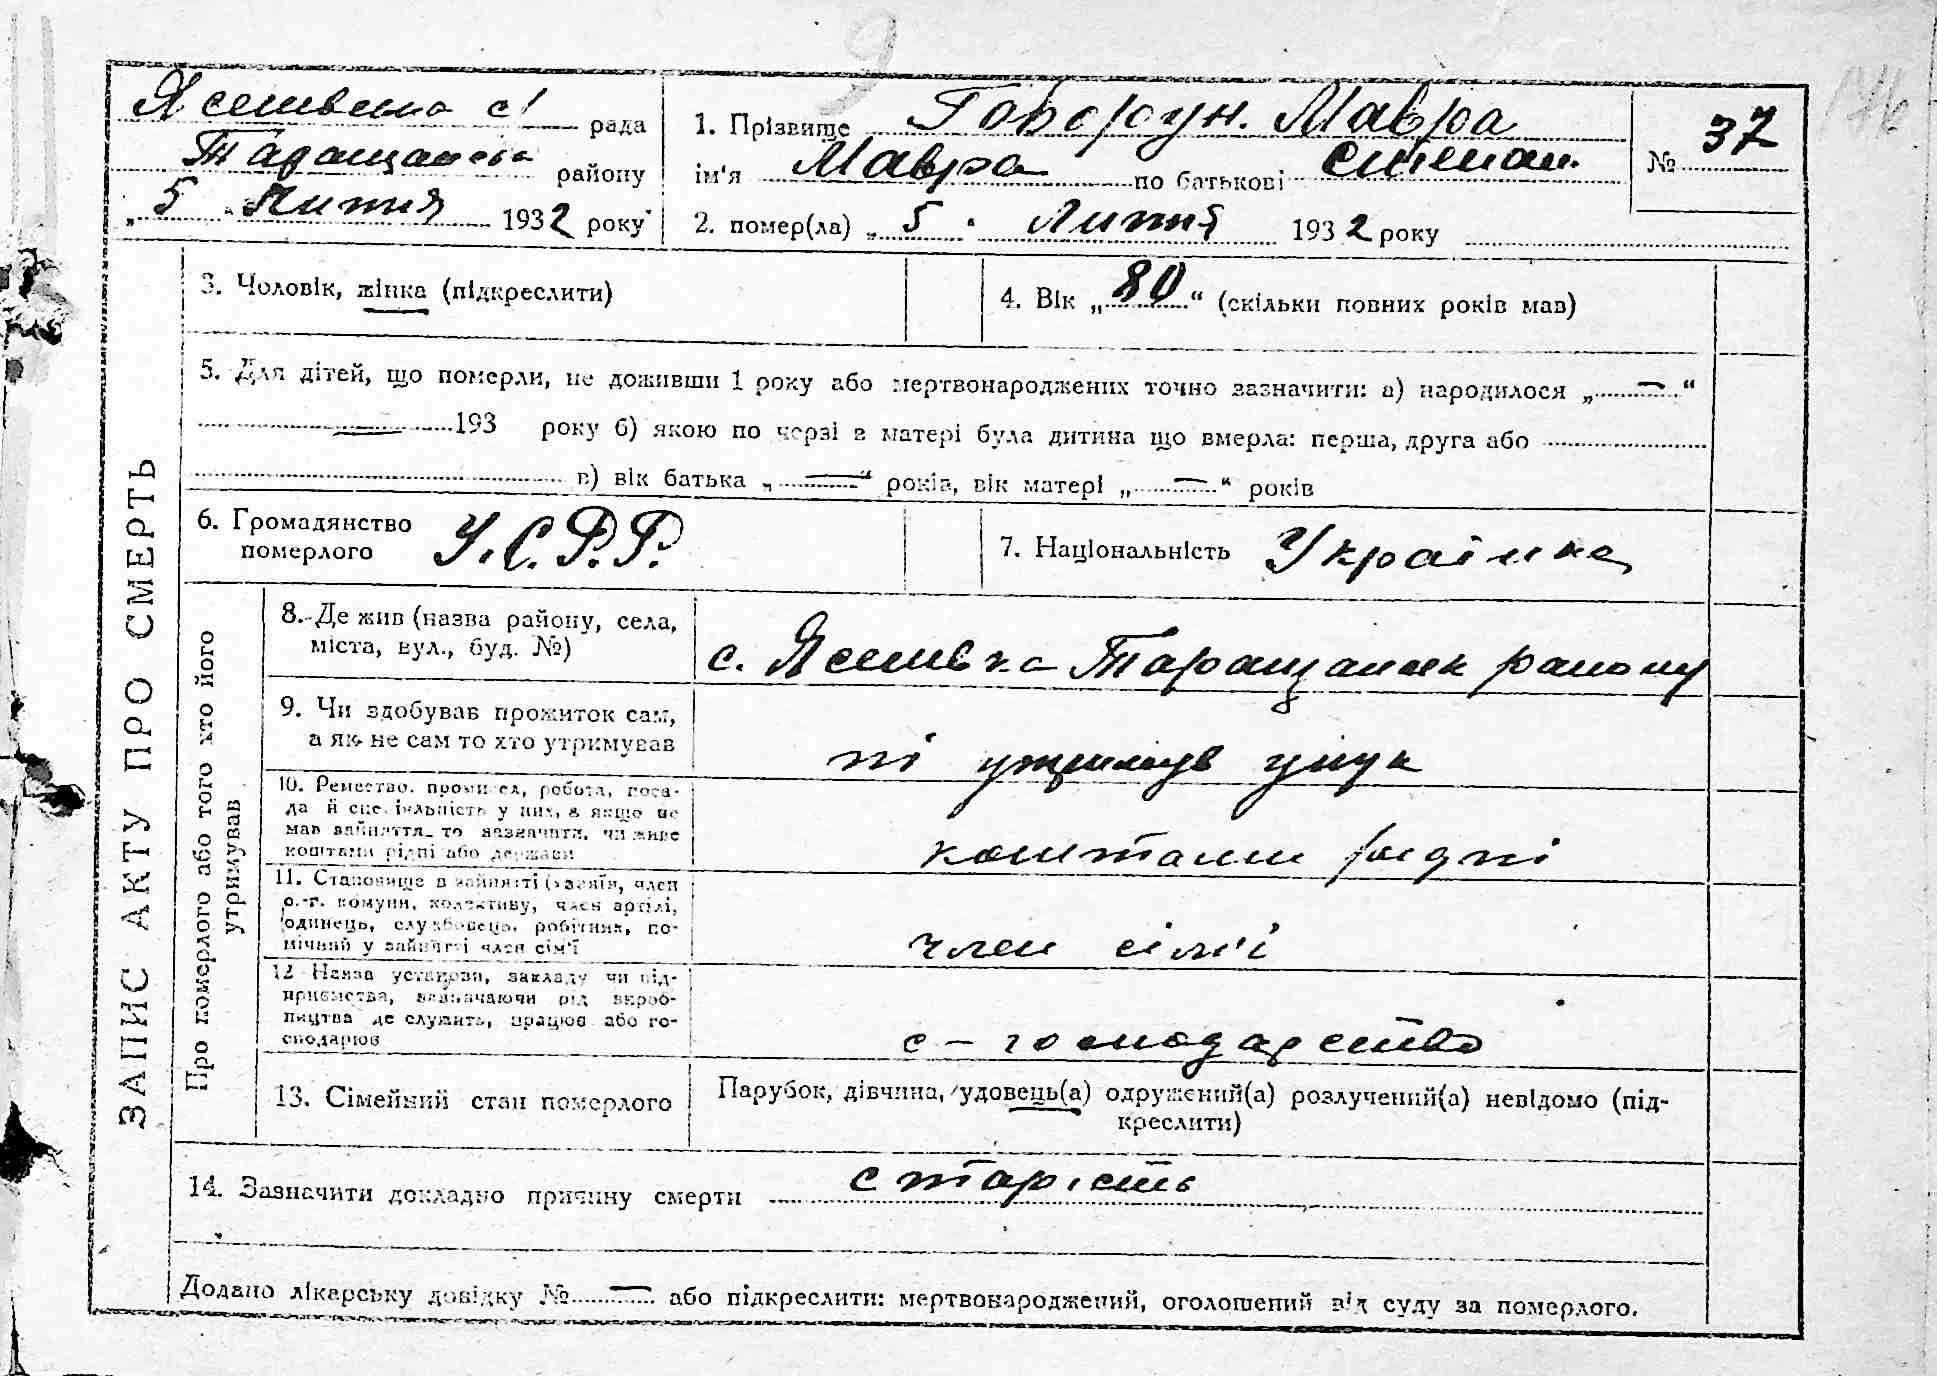 9
Ясенівська с/ рада
Таращанськ району
„ 5 “ Липня 1932 року
1. Прізвище Говорун. Мавра
ім'я Мавра по батькові Степан.
№ 37
2. помер(ла) „ 5 “ Липня 1932 року
3. Чоловік, жінка (підкреслити)
4. Вік „ 80 “ (скільки повних років мав)
5. Для дітей, що померли, не доживши 1 року або мертвонароджених точно зазначити: а) народилося „ — “
— 193 року б) якою по черзі в матері була дитина що вмерла: перша, друга або
в) вік батька „ — “ років, вік матері „ — “ років
6. Громадянство
померлого
У.С.Р.Р.
7. Національність Українка
ЗАПИС АКТУ ПРО СМЕРТЬ
Про померлого або того хто його
утримував
8. Де жив (назва району, села,
міста, вул., буд. №)
с. Ясенівка Таращанськ району
9. Чи здобував прожиток сам,
а як не сам то хто утримував
ні утримував унук
10. Ремество, промисел, робота, поса-
да й спеціяльність у них, а якщо не
мав зайняття, то зазначити, чи живе
коштами рідні або держави
коштами рідні
11. Становище в зайнятті (хазяїн, член
с.-г. комуни, колективу, член артілі,
одинець, службовець, робітник, по-
мічний у зайнятті член сім'ї
член сім'ї
12 Назва установи, закладу чи під-
приємства, зазначаючи рід вироб-
ництва де служить, працює або го-
сподарює
с – господарство
13. Сімейний стан померлого
Парубок, дівчина, удовець(а) одружений(а) розлучений(а) невідомо (під-
креслити)
14. Зазначити докладно причину смерти старість
Додано лікарську довідку № — або підкреслити: мертвонароджений, оголошений від суду за померлого.